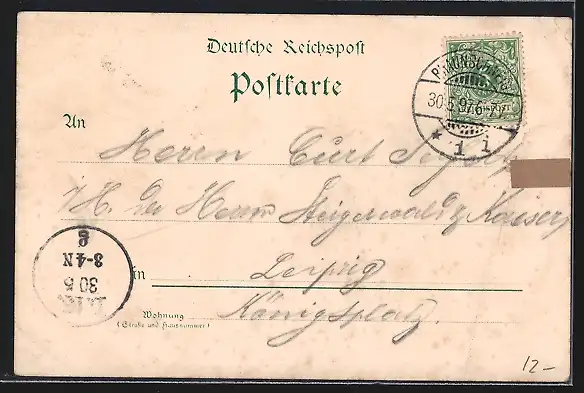 Deutsche Reichspost
Postkarte
An
Herrn Curt
i/H. der Herrn Steigerwald & Kaiser,
in Leipzig
Wohnung Königsplatz.
(Straße und Hausnummer)
BRAUNSCHWEIG
30.5.97.6-7N
* 1 i *
30 5
3-4N
8
12-